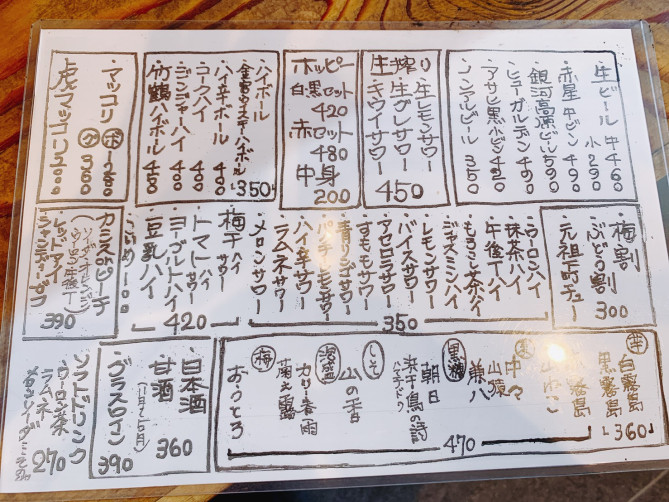 生ビール 中460 小290
赤星 中ビン 490
銀河高原ビール590
ヒューガルデン 490
アサヒ黒小ビン 420
ノンアルビール 350
生搾り
生レモンサワー
生グレサワー
キウイサワー
450
ホッピー
白黒セット
420
赤セット
480
中身
200
ハイボール
ハイボール 350
ハイ辛ボール 400
コークハイ 400
ジンジャーハイ 400
竹鶴ハイボール 450
マッコリ
ボ 1200
グ 360
虎マッコリ1200
梅割
ぶどう割
300
元祖酎チュー
ウーロンハイ
抹茶ハイ
午後ティハイ
もろこし茶ハイ
ジャスミンハイ
レモンサワー
バイスサワー
アセロラサワー
すももサワー
青リンゴサワー
パンチレモンサワー
ハイ辛サワー
ラムネサワー
メロンサワー
350
梅干ハイ
トマトハイ
ヨーグルトハイ
豆乳ハイ
420
こいめ
カシスorピーチ
レッドアイ
シャンディーガフ
390
芋
白霧島
黒霧島
赤霧島
360
米
山ねこ
中々
山猿
兼八
黒糖
朝日
浜千鳥の詩
しそ
山の香
泡盛
カリー春雨
菊之露
梅
おうとろ
470
日本酒
甘酒
360
グラスワイン
390
ソフトドリンク
ウーロン茶
ラムネ
メロンソーダ
270